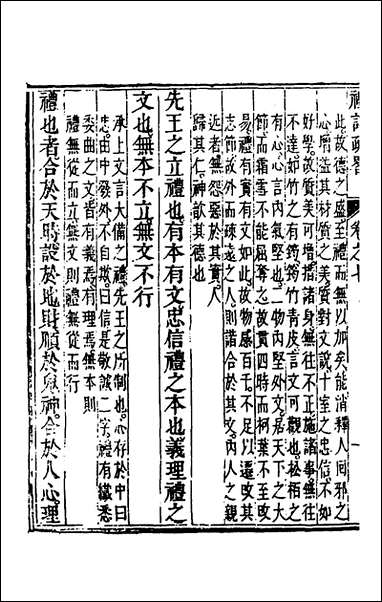 禮記疏畧 卷之十 一
此故德之盛至禮而無以加矣能消釋人回邪之
心增益其材質之美質對文說十室之忠信不如
好學故質美可增措諸身無往不正施諸事無往
不達如竹之有筠筠竹青皮言文可觀也松柏之
有心心言內氣堅也二物內堅外文居天下之大
節而霜雪不能屈奪之故貫四時而柯葉不至改
易禮有實有文如此故物感百千不足以遷改其
志節故外而疎遠之人則諧合於其文內人之親
近者無怨惡於其實人
歸其仁神歆其德也
先王之立禮也有本有文忠信禮之本也義理禮之
文也無本不立無文不行
承上文言大備之禮先王之所制也心存於中曰
忠由中發外不自欺曰信是敬誠二字禮有纖悉
委曲之文皆有義焉有理焉無本則
禮無從而立無文則禮無從而行
禮也者合於天時設於地財順於鬼神合於人心理